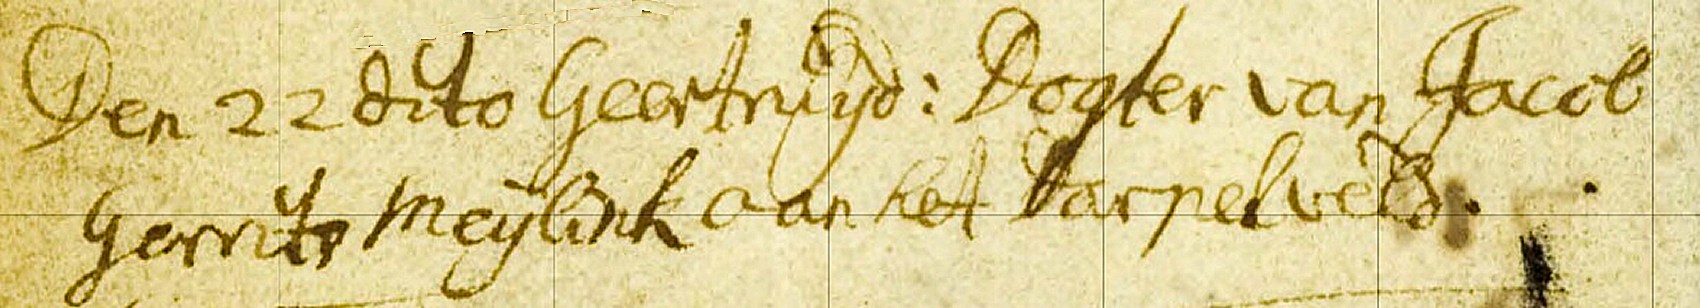 Den 22 dito Geertruijd: Dogter van Jacob
Gerrits Meijlink aan het Varpelveld.